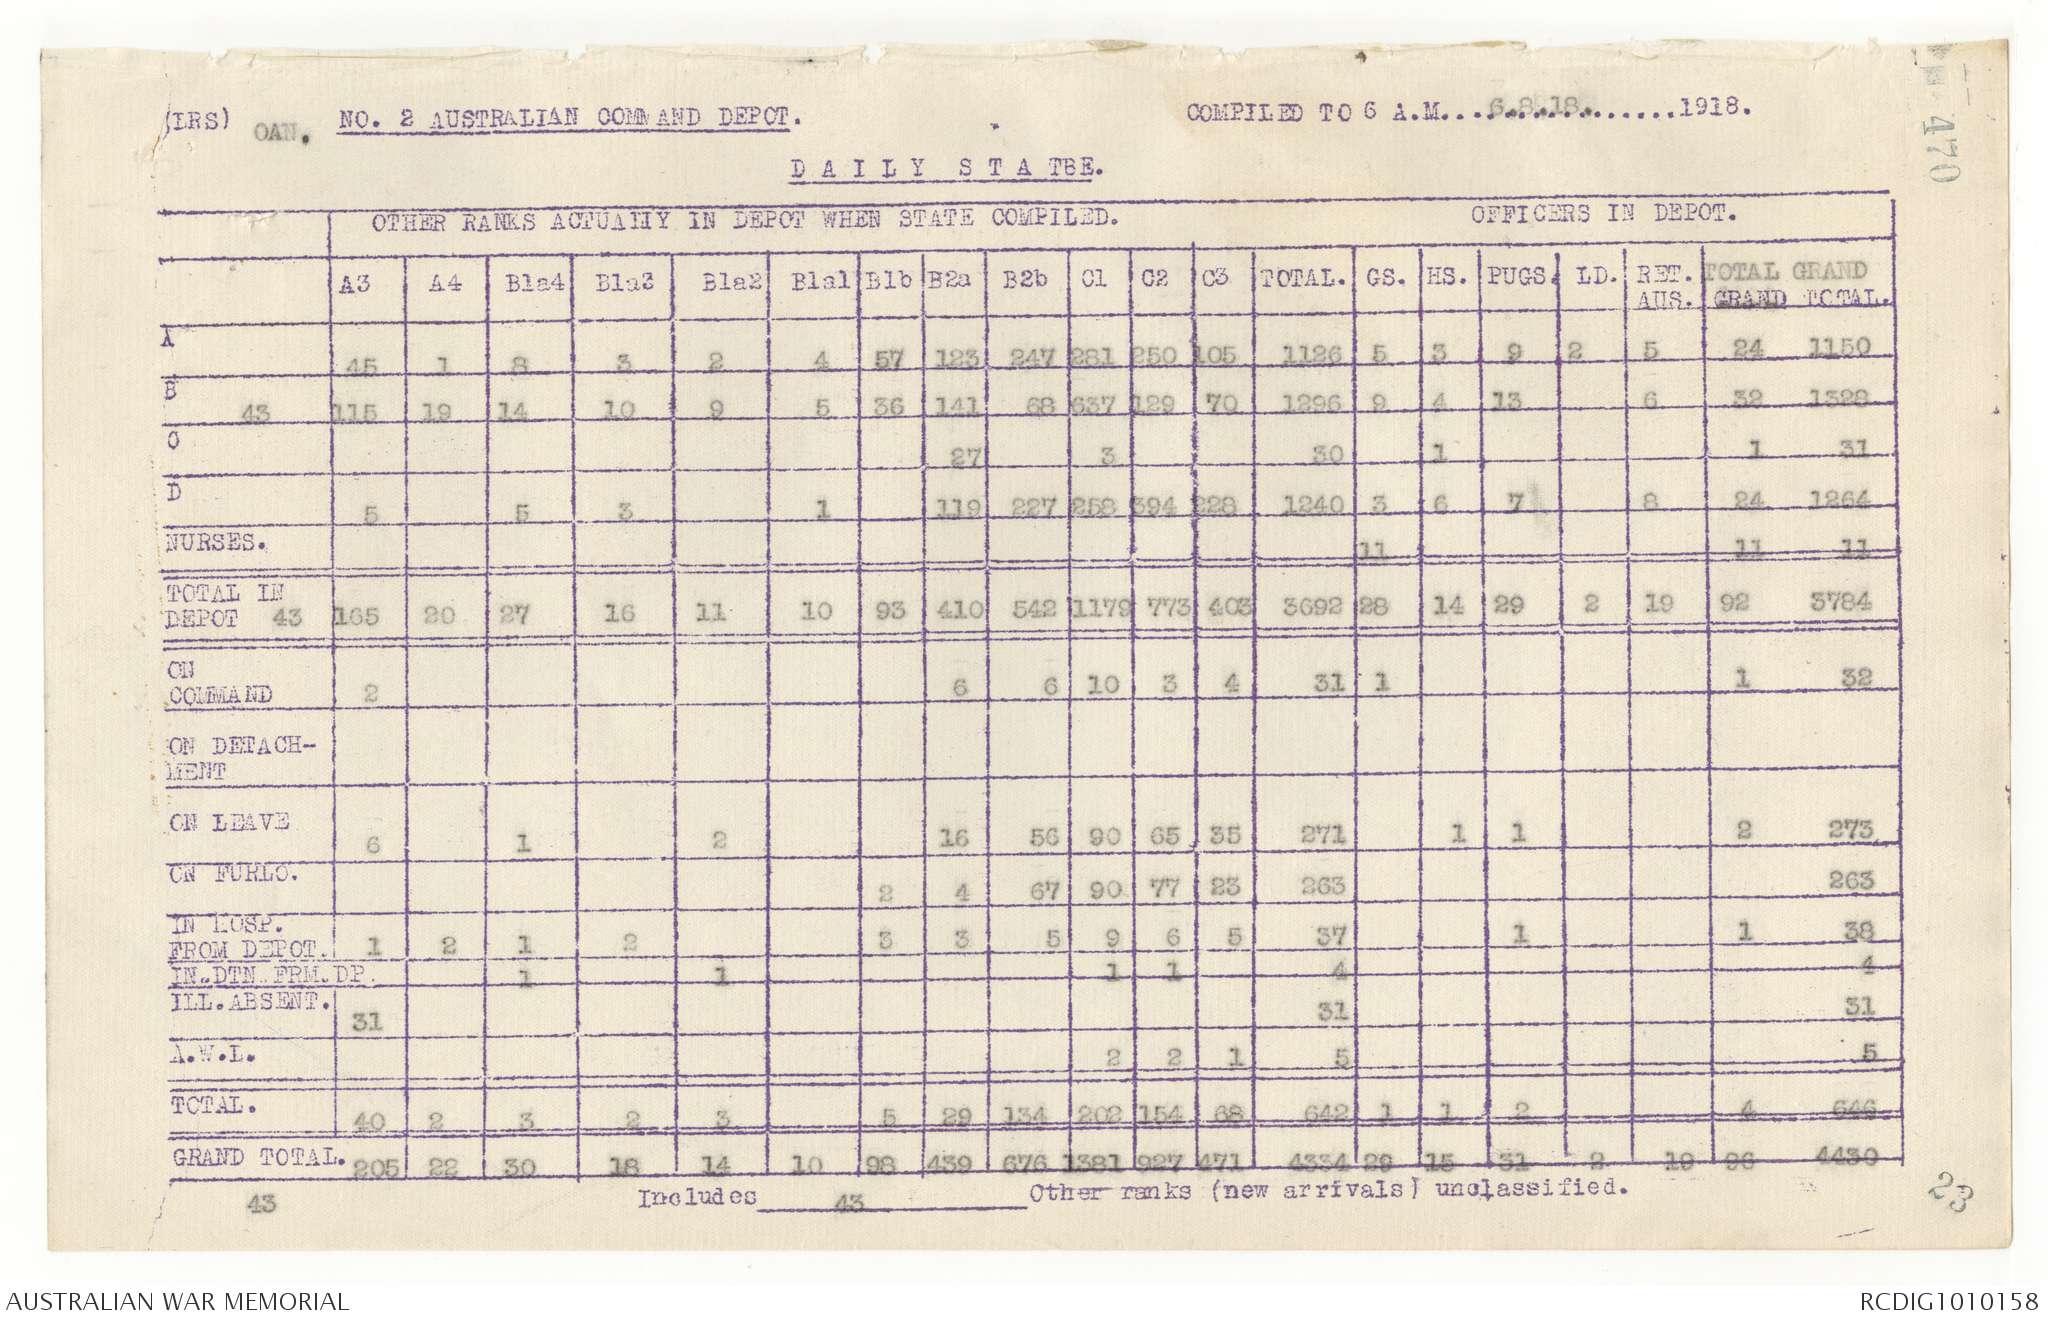 (LRS) OAN. NO. 2 AUSTRALIAN COMMAND DEPOT. COMPILED TO 6 A.M....6.8.18.......1918.
470
D A I L Y S T A TBE.
OTHER RANKS ACTUALLY IN DEPOT WHEN STATE COMPILED. OFFICERS IN DEPOT.
A3 A4 B1a4 B1a3 B1a2 B1a1 B1b B2a B2b C1 C2 C3 TOTAL. GS. HS. PUGS. LD. RET. AUS. TOTAL GRAND
GRAND TOTAL.
A 45 1 8 3 2 4 57 123 247 281 250 105 1126 5 3 9 2 5 24 1150
B 43 115 19 14 10 9 5 36 141 68 637 129 70 1296 9 4 13 6 32 1328
C 27 3 30 1 1 31
D 5 5 3 1 119 227 258 394 228 1240 3 6 7 8 24 1264
NURSES. 11 11 11
TOTAL IN
DEPOT 43 165 20 27 16 11 10 93 410 542 1179 773 403 3692 28 14 29 2 19 92 3784
ON
COMMAND 2 6 6 10 3 4 31 1 1 32
ON DETACH-
MENT
ON LEAVE 6 1 2 16 56 90 65 35 271 1 1 2 273
ON FURLO. 2 4 67 90 77 23 263 263
IN HOSP.
FROM DEPOT. 1 2 1 2 3 3 5 9 6 5 37 1 1 38
IN.DTN.FRM.DP. 1 1 1 1 4 4
ILL.ABSENT. 31 31 31
A.W.L. 2 2 1 5 5
TOTAL. 40 2 3 2 3 5 29 134 202 154 68 642 1 1 2 4 646
GRAND TOTAL. 205 22 30 18 14 10 98 439 676 1381 927 471 4334 29 15 31 2 19 96 4430
43 Includes 43 Other ranks (new arrivals) unclassified.
23
AUSTRALIAN WAR MEMORIAL RCDIG1010158